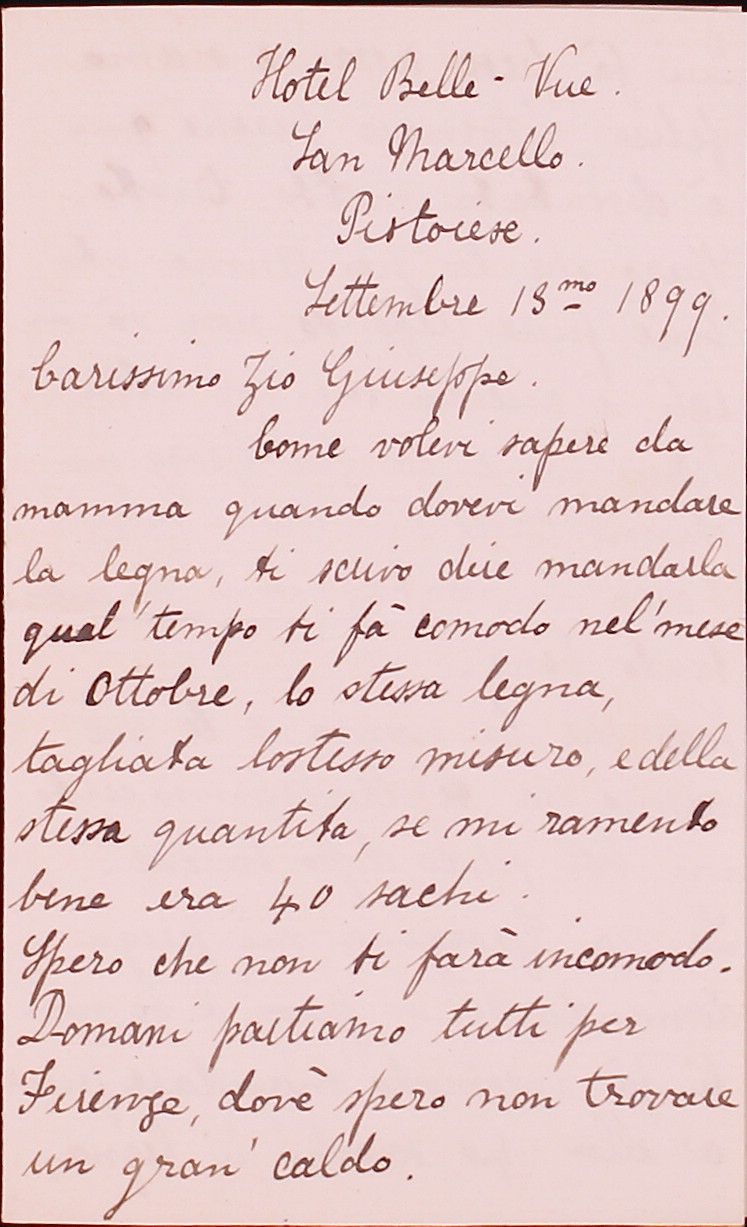 Hotel Belle-Vue.
San Marcello.
Pistoiese.
Settembre 13mo 1899.
Carissimo Zio Giuseppe.
Come volevi sapere da
mamma quando dovevi mandare
la legna, ti scrivo dire mandarla
qual' tempo ti fà comodo nel' mese
di Ottobre, lo stessa legna,
tagliata lostesso misuro, e della
stessa quantita, se mi ramento
bene era 40 sachi.
Spero che non ti farà incomodo.
Domani partiamo tutti per
Firenze, dovè spero non trovare
un gran' caldo.